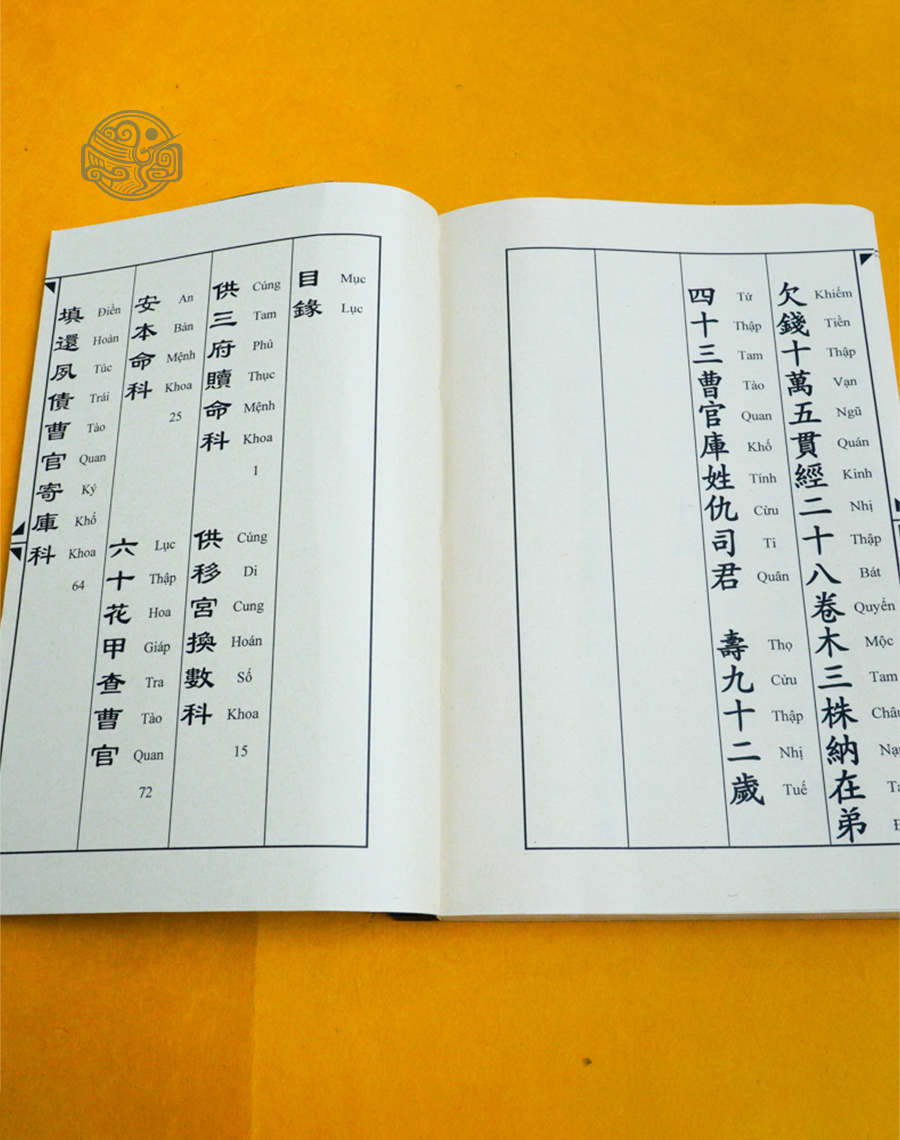 欠錢十萬五貫經二十八卷木三株納在弟
Khiếm Tiền Thập Vạn Ngũ Quán Kinh Nhị Thập Bát Quyển Mộc Tam
四十三曹官庫姓仇司君 壽九十二歲
Tứ Thập Tam Tào Quan Khố Tính Cừu Ti Quân Thọ Cửu Thập Nhị Tuế
目錄
Mục Lục
供三府贖命科
Cúng Tam Phủ Thục Mệnh Khoa 1
供移宮換數科
Cúng Di Cung Hoán Số Khoa 15
安本命科
An Bản Mệnh Khoa 25
六十花甲查曹官
Lục Thập Hoa Giáp Tra Tào Quan 72
填還夙債曹官寄庫科
Điền Hoàn Túc Trái Tào Quan Ký Khố Khoa 64